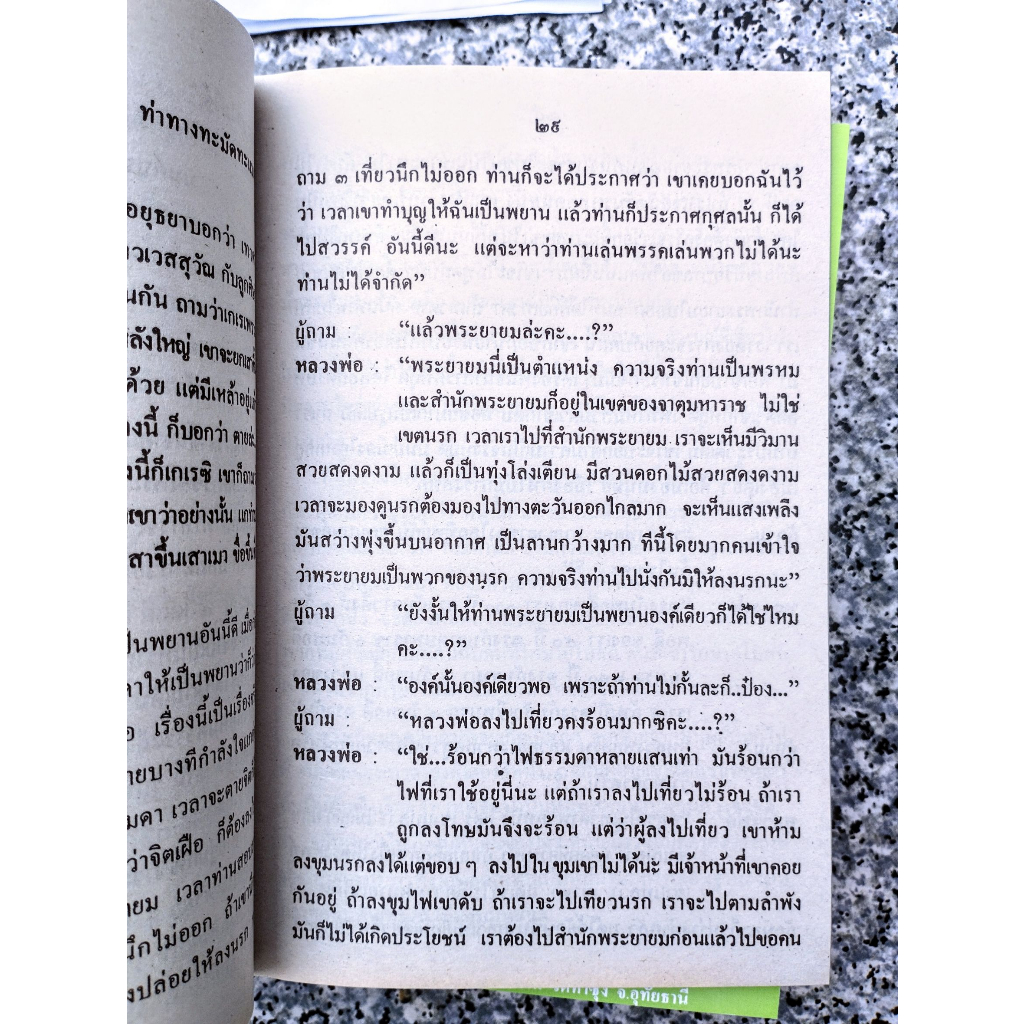 ท่าทางทะมัดทะ
อยุธยาบอกว่า
วเวสสุวัณ กับลูก
นกัน ถามว่าเกเรเพ
ลังใหญ่ เขาจะยก
ด้วย แต่มีเหล้าอยู่
งนี้ ก็บอกว่า
งนี้ก็เกเรซิ เขาก็
เขาว่าอย่างนั้น
สาขึ้นเสาเมา
ป็นพยานอันนี้ดี
าให้เป็นพยานว่า
อ เรื่องนี้เป็นเรื่อง
ายบางทีกำลังใจ
มดา เวลาจะตายจิต
ว่าจิตเฝือ ก็ต้อง
ายม เวลาท่านสอบ
นึกไม่ออก ถ้าเขา
งปล่อยให้ลงนรก
๒๙
ถาม ๓ เที่ยวนึกไม่ออก ท่านก็จะได้ประกาศว่า เขาเคยบอกฉันไว้
ว่า เวลาเขาทำบุญให้ฉันเป็นพยาน แล้วท่านก็ประกาศกุศลนั้น ก็ได้
ไปสวรรค์ อันนี้ดีนะ แต่จะหาว่าท่านเล่นพรรคเล่นพวกไม่ได้นะ
ท่านไม่ได้จำกัด”
ผู้ถาม : “แล้วพระยายมล่ะคะ....?”
หลวงพ่อ : “พระยายมนี่เป็นตำแหน่ง ความจริงท่านเป็นพรหม
และสำนักพระยายมก็อยู่ในเขตของจาตุมหาราช ไม่ใช่
เขตนรก เวลาเราไปที่สำนักพระยายม เราจะเห็นมีวิมาน
สวยสดงดงาม แล้วก็เป็นทุ่งโล่งเตียน มีสวนดอกไม้สวยสดงดงาม
เวลาจะมองดูนรกต้องมองไปทางตะวันออกไกลมาก จะเห็นแสงเพลิง
มันสว่างพุ่งขึ้นบนอากาศ เป็นลานกว้างมาก ทีนี้โดยมากคนเข้าใจ
ว่าพระยายมเป็นพวกของนรก ความจริงท่านไปนั่งกันมิให้ลงนรกนะ”
ผู้ถาม “ยังงั้นให้ท่านพระยายมเป็นพยานองค์เดียวก็ได้ใช่ไหม
คะ....?”
หลวงพ่อ : “องค์นั้นองค์เดียวพอ เพราะถ้าท่านไม่กั้นละก็..ป๋อง...”
ผู้ถาม : “หลวงพ่อลงไปเที่ยวคงร้อนมากซิคะ....?”
หลวงพ่อ : “ใช่...ร้อนกว่าไฟธรรมดาหลายแสนเท่า มันร้อนกว่า
ไฟที่เราใช้อยู่นี้นะ แต่ถ้าเราลงไปเที่ยวไม่ร้อน ถ้าเรา
ถูกลงโทษมันจึงจะร้อน แต่ว่าผู้ลงไปเที่ยว เขาห้าม
ลงขุมนรกลงได้แต่ขอบ ๆ ลงไปใน ขุมเขาไม่ได้นะ มีเจ้าหน้าที่เขาคอย
กันอยู่ ถ้าลงขุมไฟเขาดับ ถ้าเราจะไปเที่ยวนรก เราจะไปตามลำพัง
มันก็ไม่ได้เกิดประโยชน์ เราต้องไปสำนักพระยายมก่อนแล้วไปขอคน
จ.อุทัยธานี